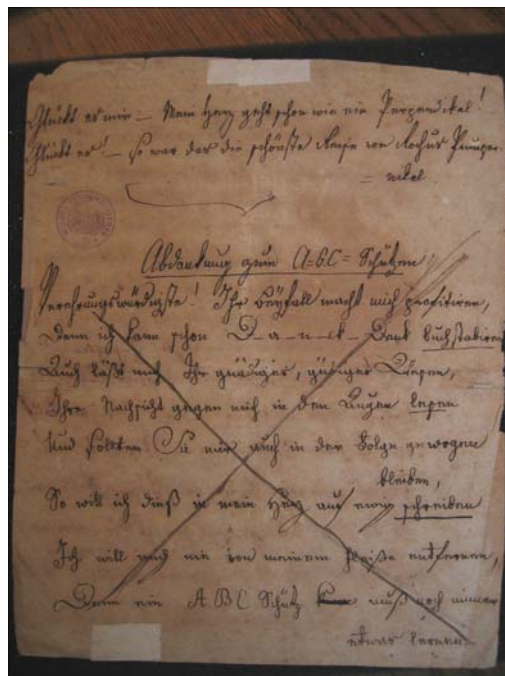 Glückt es mir – Mein Herz geht schon wie ein Perpendikel!
Glückt es! – so war das die schönste Reise von Rochus Pumper-
= nikel.
Abdankung zum A=B.C= Schützen
Verehrungswürdigste! Ihr Beyfall macht mich profitiren,
Denn ich kann schon D–a–n–k– Dank buchstabiren
Auch läßt mich Ihr gnädiger, gütiger
Ihre Nachsicht gegen mich in den Augen lesen
Und sollten Sie mir auch in der Folge gewogen
bleiben,
So will ich dieß in mein Herz auf ewig schreiben
Ich will mich nie von meinem Fleiße entfernen,
Denn ein A.B.C. Schütz muß noch immer
etwas lernen.